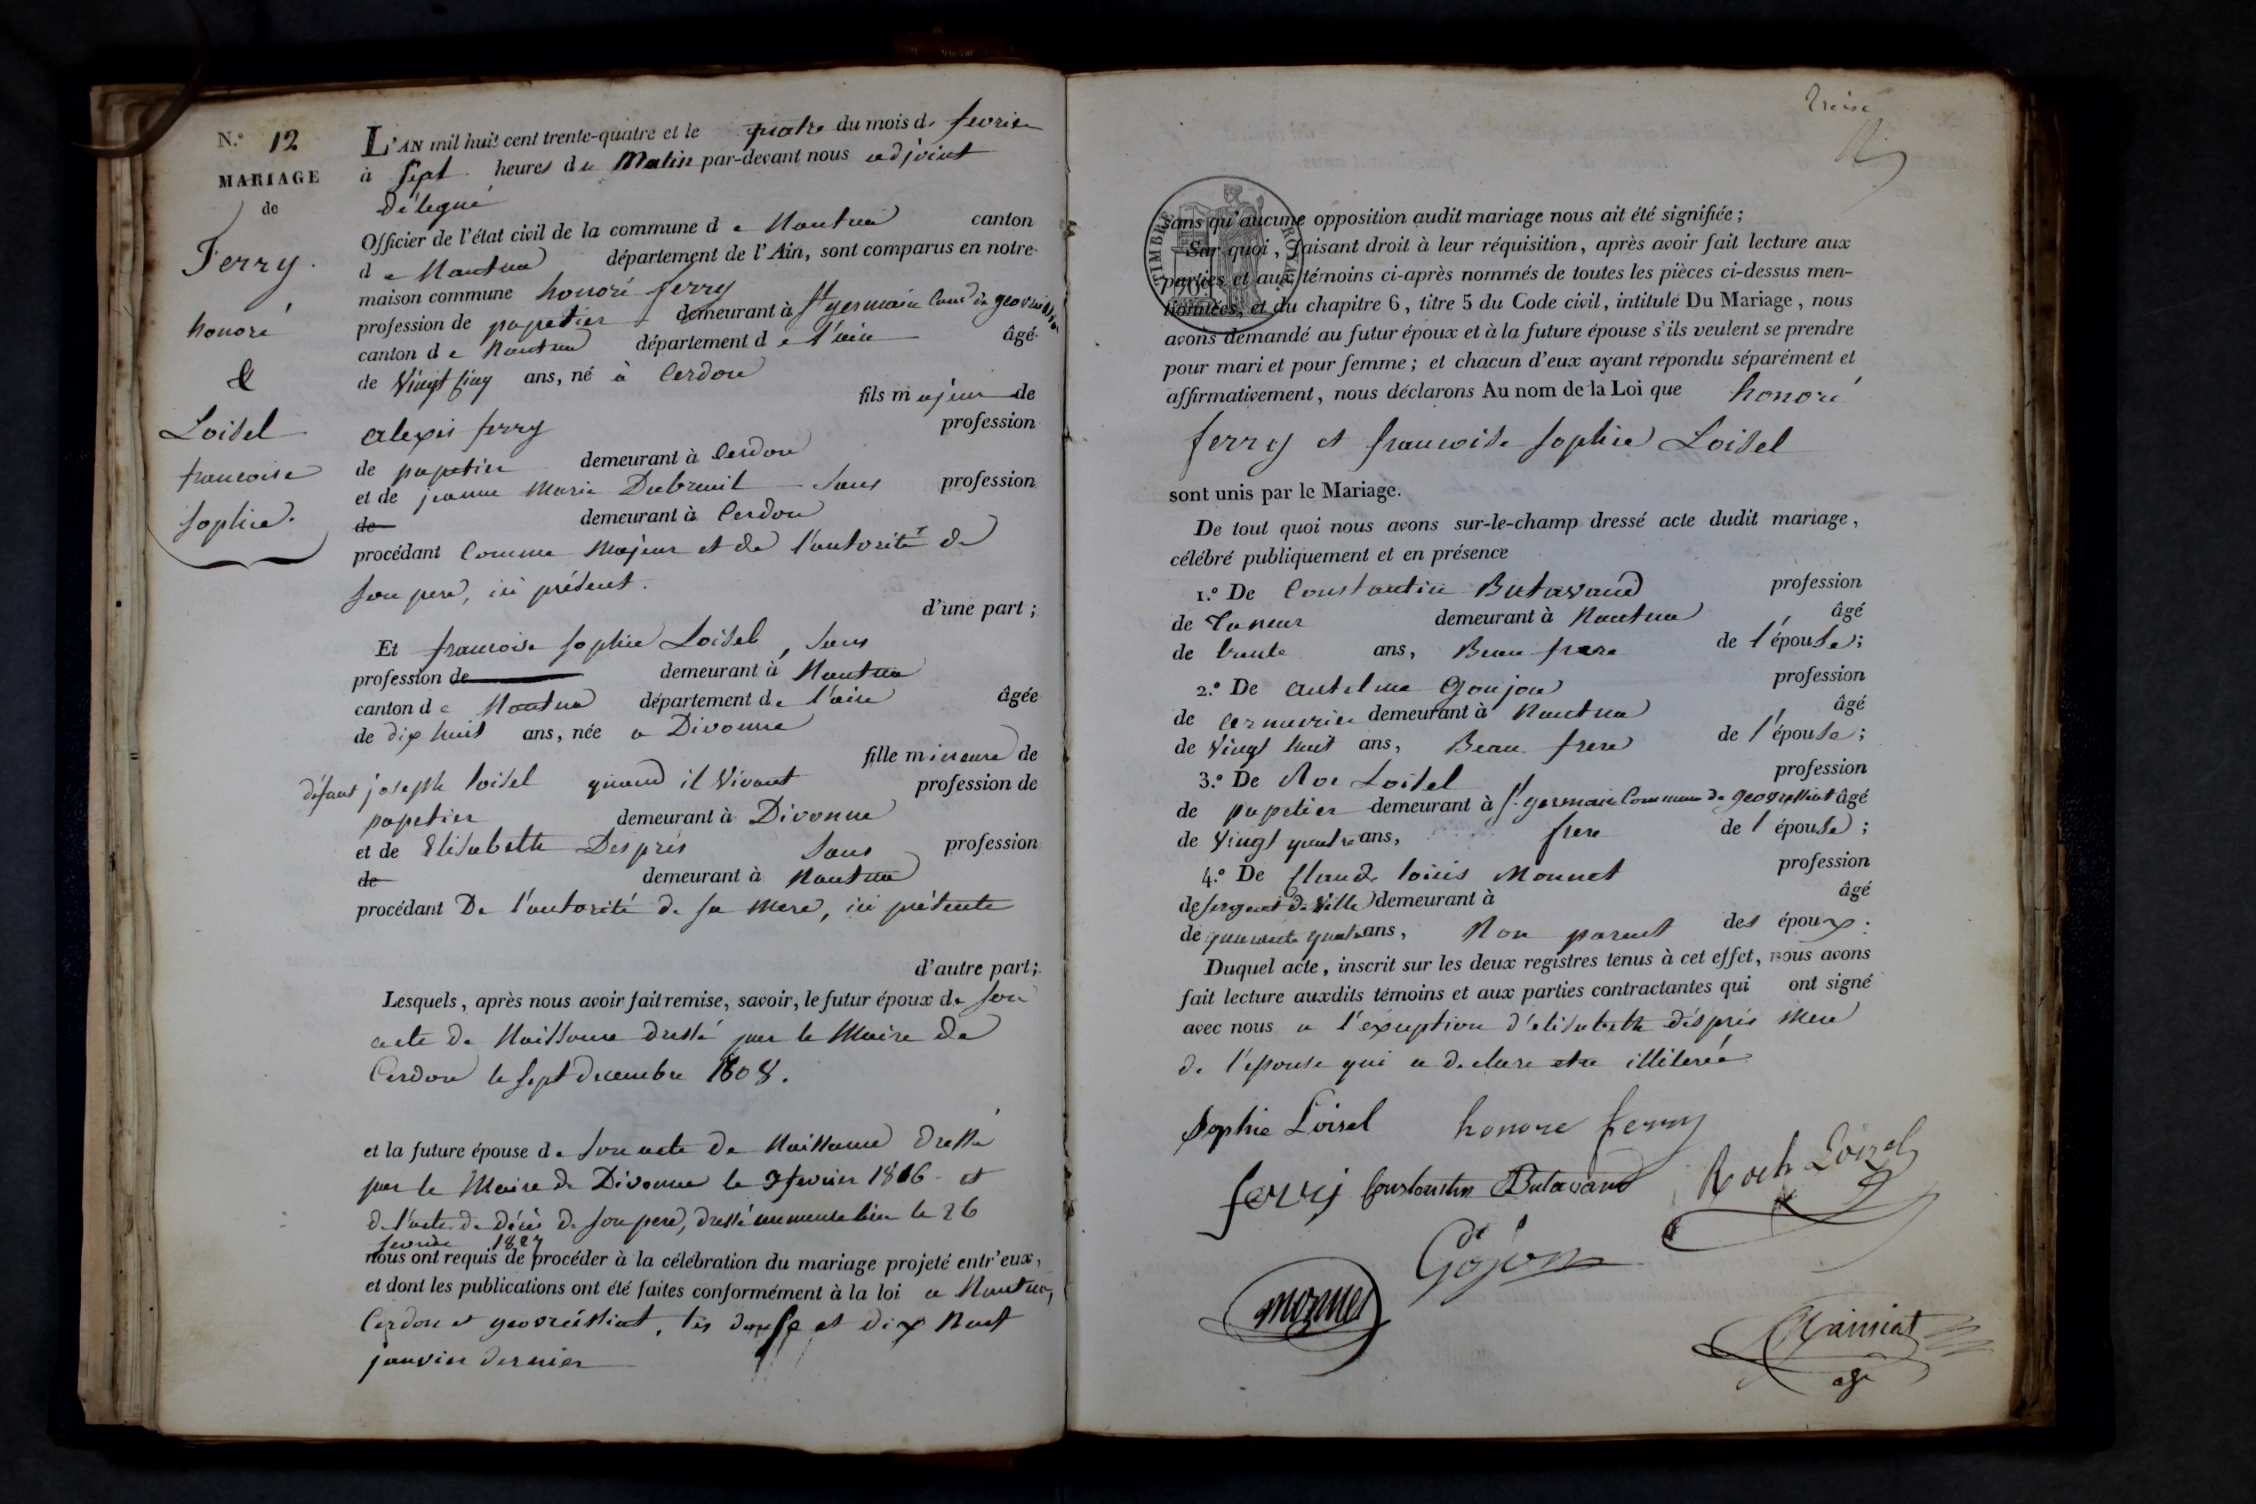 N.º 12
MARIAGE
de
Ferry.
honoré
&
Loisel
francoise
sophie.
L'AN mil huit cent trente-quatre et le quatre du mois de fevrier
à sept heures du Matin par-devant nous adjoint
délégué
Officier de l'état civil de la commune de Nantua canton
de Nantua département de l'Ain, sont comparus en notre
maison commune honoré ferry
profession de papetier demeurant à St germain
canton de Nantua département de l'ain âgé
de Vingt cinq ans, né à Cerdon
fils majeur de
alexis ferry profession
de papetier demeurant à Cerdon
et de jeanne Marie Dubreuil sans profession
de demeurant à Cerdon
procédant Comme Majeur et de l'autorité de
son pere, ici présent.
d'une part;
Et francoise sophie Loisel, sans
profession de demeurant à Nantua
canton de Nantua département de l'ain âgée
de dix huit ans, née a Divonne
fille mineure de
défunt joseph loisel quand il Vivant profession de
papetier demeurant à Divonne
et de Elisabeth Desprès sans profession
de demeurant à Nantua
procédant De l'autorité de sa Mere, ici présente
d'autre part;
Lesquels, après nous avoir fait remise, savoir, le futur époux de son
acte de Naissance dressé par le Maire de
Cerdon le sept decembre 1808.
et la future épouse de son acte de Naissance dressé
par le Maire de Divonne le 9 fevrier 1816 et
de l'acte de décès de son pere, dressé le 26
fevrier 1827
nous ont requis de procéder à la célébration du mariage projeté entr'eux,
et dont les publications ont été faites conformément à la loi a Nantua,
Cerdon et geovreissiat, les douze et dix Neuf
janvier dernier
treize
TIMBRE ROYAL
sans qu'aucune opposition audit mariage nous ait été signifiée;
Sur quoi, faisant droit à leur réquisition, après avoir fait lecture aux
parties et aux témoins ci-après nommés de toutes les pièces ci-dessus men-
tionnées, et du chapitre 6, titre 5 du Code civil, intitulé Du Mariage, nous
avons demandé au futur époux et à la future épouse s'ils veulent se prendre
pour mari et pour femme; et chacun d'eux ayant répondu séparément et
affirmativement, nous déclarons Au nom de la Loi que honoré
ferry et francoise sophie Loisel
sont unis par le Mariage.
De tout quoi nous avons sur-le-champ dressé acte dudit mariage,
célébré publiquement et en présence
1.º De Constantin Butavand profession
de taneur demeurant à Nantua, âgé
de trente ans, Beau frere de l'épouse;
2.º De antelme Goujon profession
de demeurant à Nantua, âgé
de Vingt huit ans, Beau frere de l'épouse;
3.º De Roc Loisel profession
de papetier demeurant à St germain Commune de geovressiat âgé
de Vingt quatre ans, frere de l'épouse;
4.º De Claude loüis Monnet profession
de sergent de Ville demeurant à âgé
de quarante quatre ans, Non parent des époux.
Duquel acte, inscrit sur les deux registres tenus à cet effet, nous avons
fait lecture auxdits témoins et aux parties contractantes qui ont signé
avec nous a l'exeption d'elisabeth désprés Mere
de l'épouse qui a declare etre illiterée
Sophie Loisel honore ferry
ferry Constantin Butavand Roch Loizel
Gojon
monnet
adj